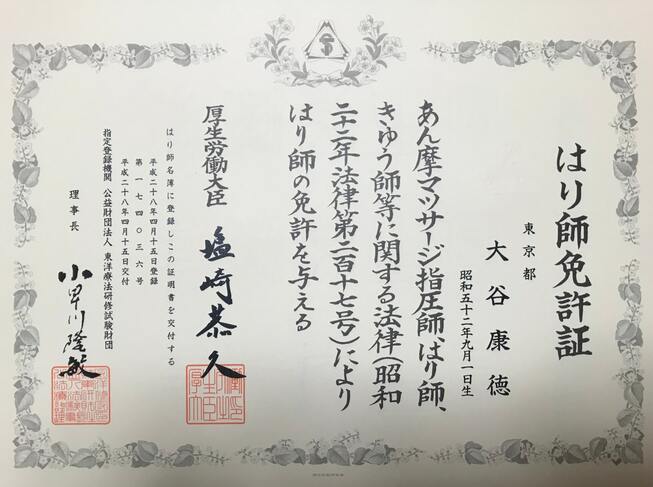 はり師免許証
東京都
大谷康徳
昭和五十二年九月一日生
あん摩マツサージ指圧師、はり師、
きゆう師等に関する法律(昭和
二十二年法律第二百十七号)により
はり師の免許を与える
厚生労働大臣 塩崎恭久
はり師名簿に登録しこの証明書を交付する
平成二十八年四月十五日登録
第一七四〇三六号
平成二十八年四月十五日交付
指定登録機関 公益財団法人 東洋療法研修試験財団
理事長 小早川隆敏